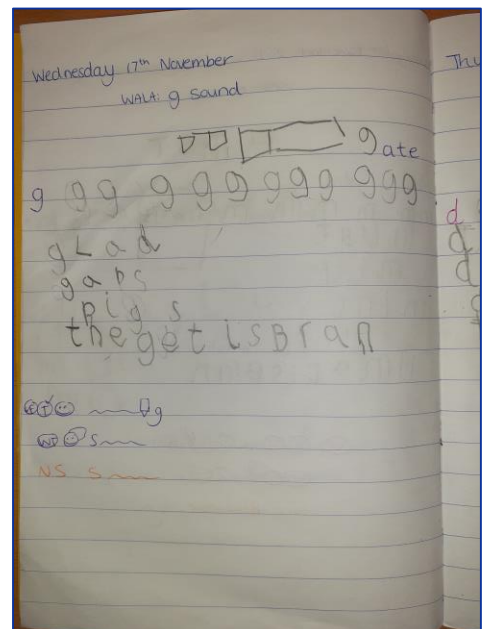 Wednesday 17th November
WALA: g sound
gate
g g g g g g g g g g g g
gLad
gaps
pigs
the get is Bran
g
S
NS S
Thu
d
d
d